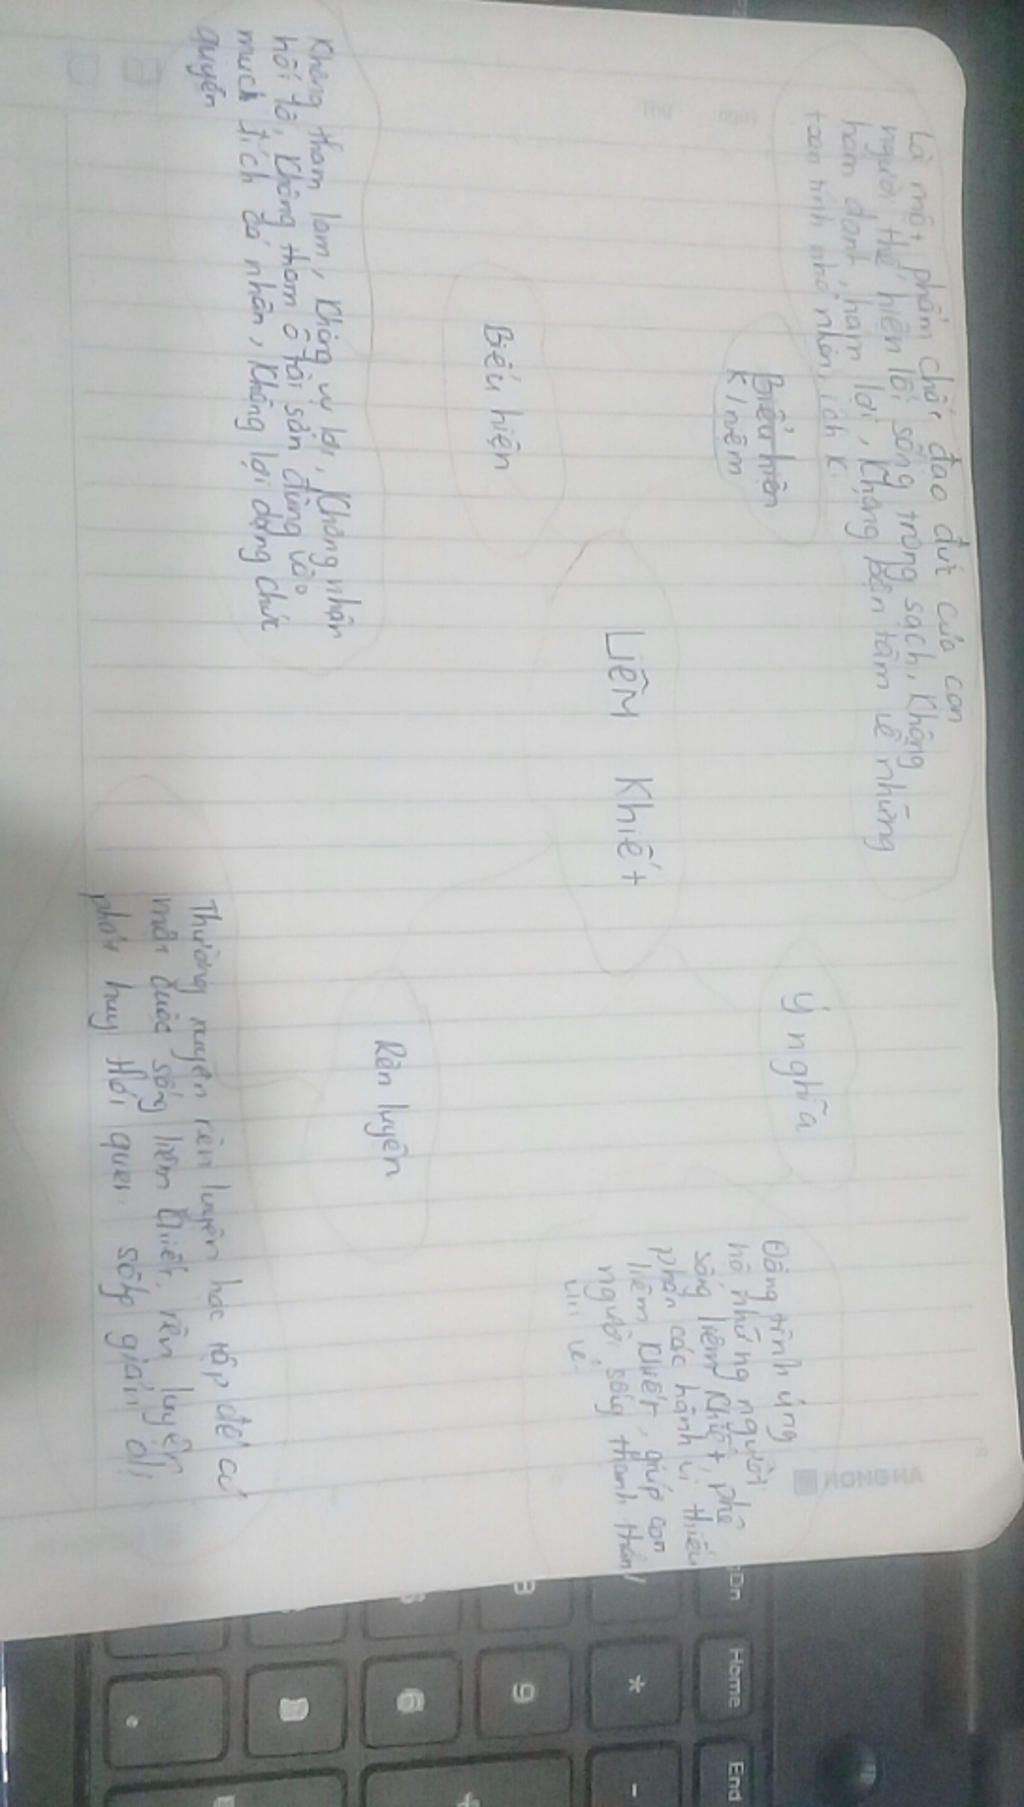 Là một phẩm chất đạo đức của con
người thể hiện lối sống trong sạch, không
ham danh, ham lợi, không bận tâm về những
toan tính nhỏ nhen, ích kỉ
Biểu hiện
K/niệm
Biểu hiện
Không tham lam, không vụ lợi, không nhận
hối lộ, không tham ô tài sản dùng vào
mục đích cá nhân, không lợi dụng chức
quyền
LIÊM KHIẾT
Ý nghĩa
Đồng tình ủng
hộ những người
sống liêm khiết, phê
phán các hành vi thiếu
liêm khiết, giúp con
người sống thanh thản/
vui vẻ
Rèn luyện
Thường xuyên rèn luyện học tập để có
một cuộc sống liêm khiết, rèn luyện
phát huy thói quen sống giản dị
HONG HA
On
Home
End
3
9
*
-
6